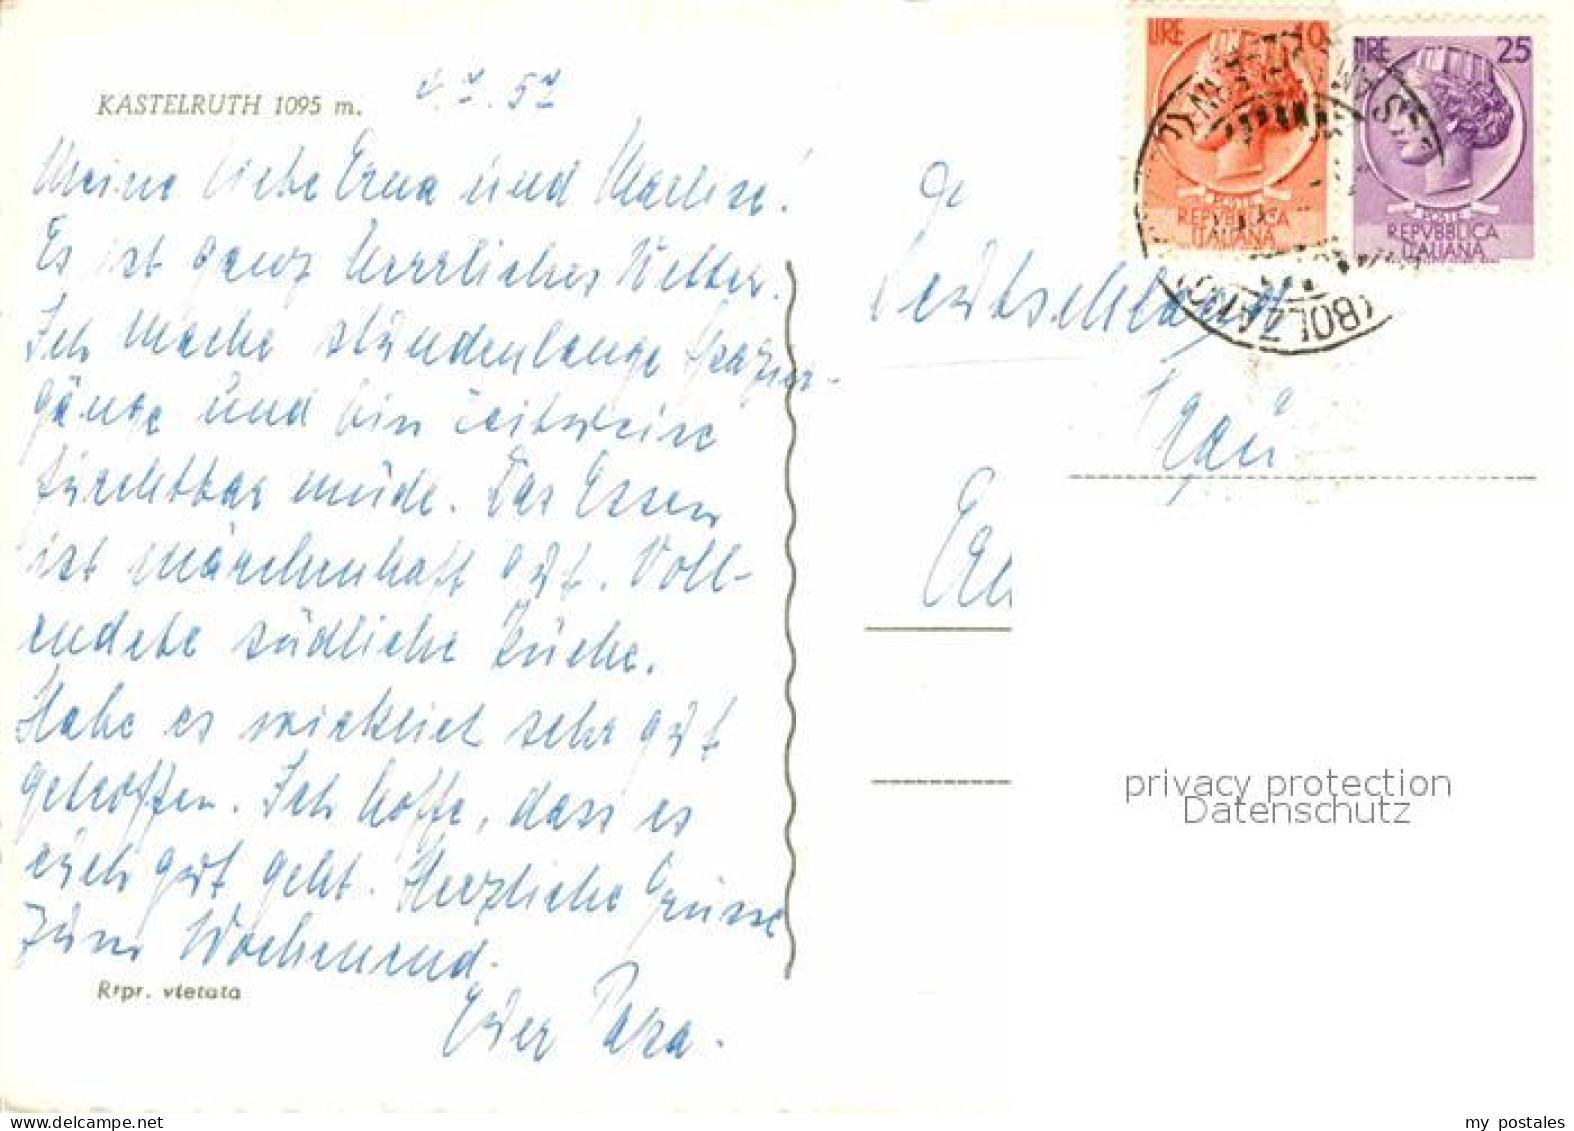 KASTELRUTH 1095 m.
Meine liebe Erna und Marlise!
Es ist ganz herrliches Wetter.
Ich mache stundenlange Spazier-
gänge und bin zeitweise
furchtbar müde. Das Essen
ist märchenhaft gut. Voll-
endete südliche Küche.
Habe es wirklich sehr gut
getroffen. Ich hoffe, dass es
euch gut geht. Herzliche Grüsse
zum Wochenend.
Euer Papa.
Ripr. vietata
LIRE 10
POSTE
REPVBBLICA
ITALIANA
LIRE 25
POSTE
REPVBBLICA
ITALIANA
(BOLZANO)
Deutschland
Frau
privacy protection
Datenschutz
my postales